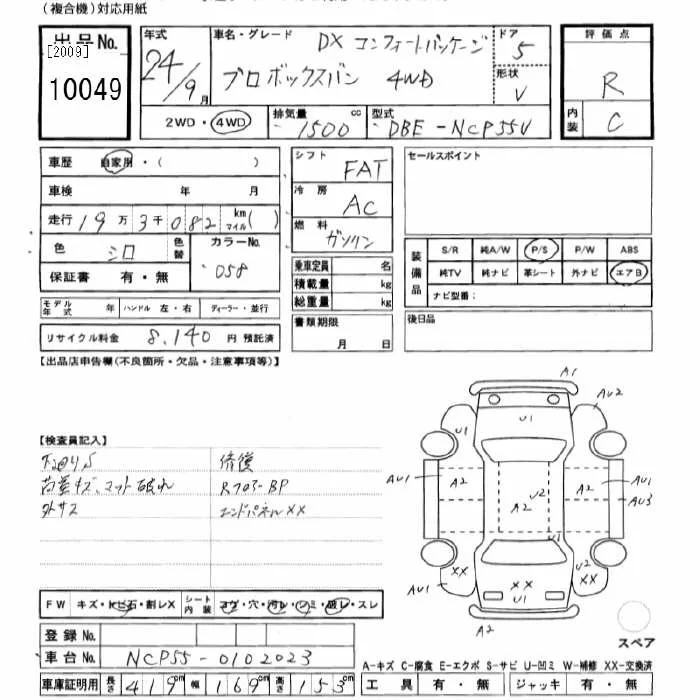 (複合機)対応用紙
出品No.
[2009]
10049
年式
24/9月
車名・グレード
DX コンフォートパッケージ
プロボックスバン 4WD
ドア
5
形状
V
評価点
R
内装
C
2WD・4WD
排気量
1500 cc
型式
DBE-NCP55V
車歴 自家用・( )
車検 年 月
走行 19万3千082 km マイル( )
色 シロ 色替
カラーNo.
058
保証書 有・無
モデル年式 年 ハンドル 左・右 ディーラー・並行
リサイクル料金 8,140 円 預託済
シフト
FAT
冷房
AC
燃料
ガソリン
乗車定員 名
積載量 kg
総重量 kg
書類期限
月 日
セールスポイント
装備品
S/R 純A/W P/S P/W ABS
純TV 純ナビ 革シート 外ナビ エアB
ナビ型番:
後日品
【出品店申告欄(不良箇所・欠品・注意事項等)】
【検査員記入】
下廻りS 修復
荷室キズ、マット破れ RフロアBP
外サス エンドパネルXX
FW キズ・トビ石・割レX シート内装 コゲ・穴・汚レ・シミ・破レ・スレ
登録No.
車台No. NCP55-0102023
車庫証明用 長さ 419cm 幅 169cm 高さ 153cm
A1
AU2
U1
U1
AU1
A2
A2
U2
A2
AU1
AU3
U1
U2
AU1
XX
XX
U1
XX
A2
スペア
A-キズ C-腐食 E-エクボ S-サビ U-凹ミ W-補修 XX-交換済
工具 有・無 ジャッキ 有・無